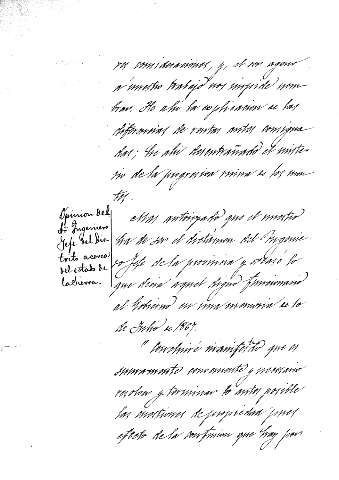 ras consideraciones, y, el ser ageno
á nuestro trabajo nos impide nom-
brar. He ahi la esplicacion de las
diferencias de rentas antes consigna-
das; he ahi desentrañado el miste-
rio de la progresiva ruina de los mon-
tes.
Opinion del
Sr. Ingeniero
Jefe del Dis-
trito acerca
del estado de
la Sierra.
Mas autorizado que el nuestro
ha de ser el dictámen del Ingenie-
ro Jefe de la provincia y
que decia aquel digno funcionario
al Gobierno en una memoria de 10
de Julio de 1867.
" Concluiré manifestando que es
sumamente conveniente y necesario
resolver y terminar lo antes posible
las cuestiones de propiedad pues
efecto de la confusion que hay por